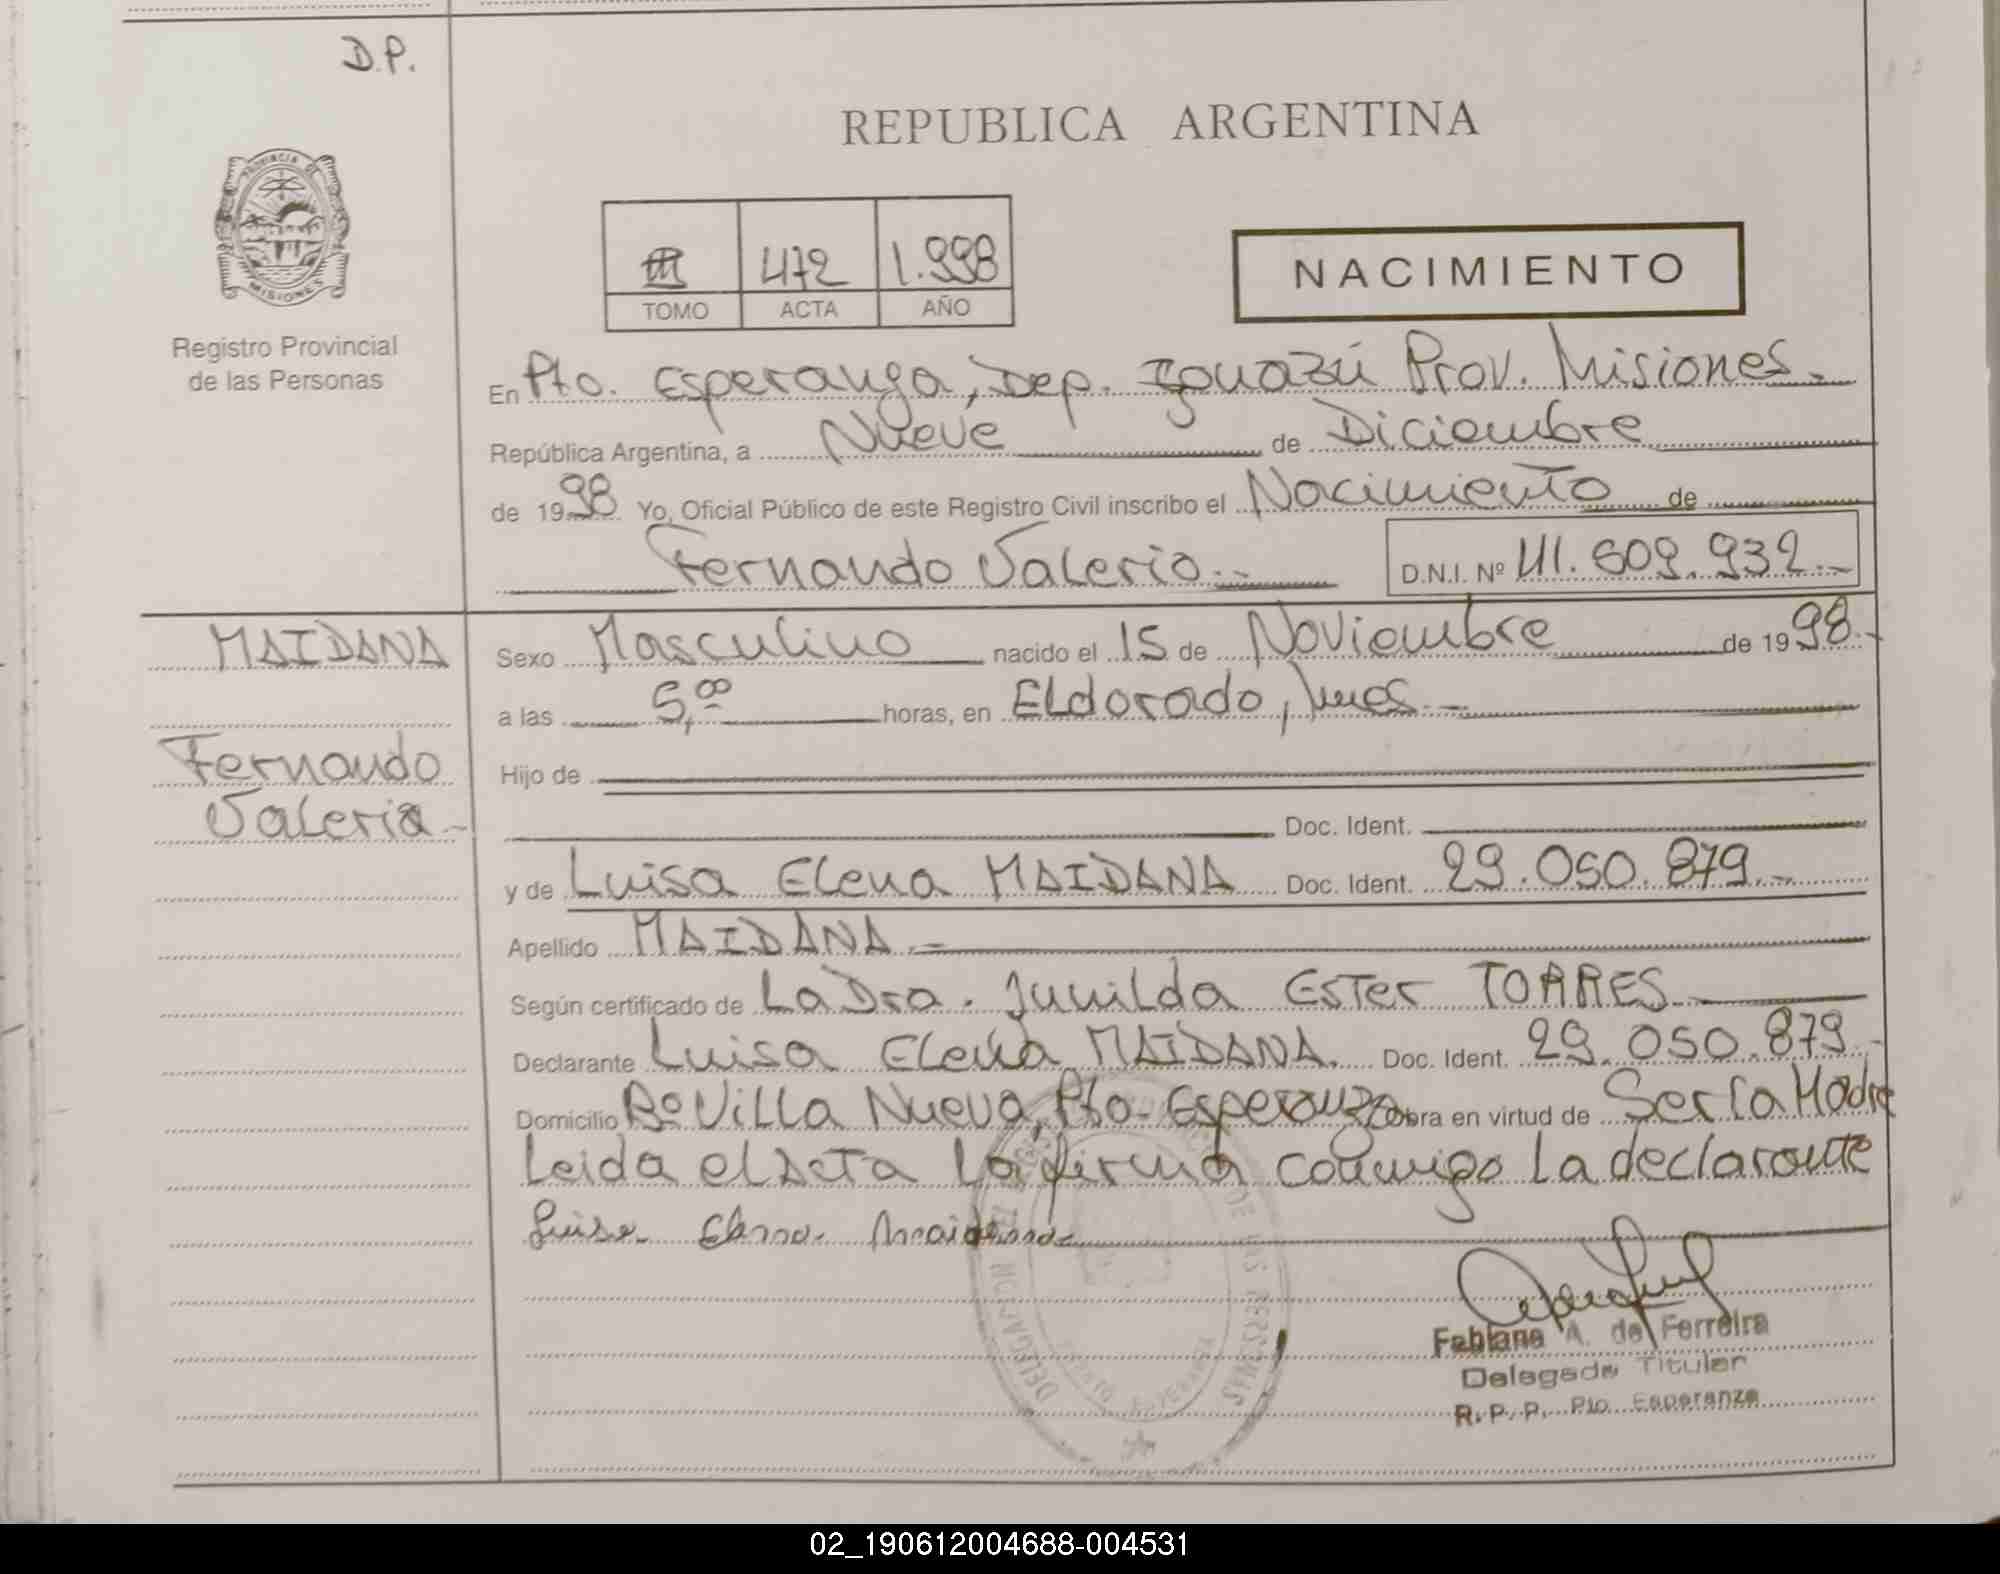 D.P.
REPUBLICA ARGENTINA
PROVINCIA DE MISIONES
III 472 1.998
TOMO ACTA AÑO
NACIMIENTO
Registro Provincial
de las Personas
En Pto. Esperanza, Dep. Iguazú Prov. Misiones.-
República Argentina, a Nueve de Diciembre
de 1998 Yo, Oficial Público de este Registro Civil inscribo el Nacimiento de
Fernando Valerio.- D.N.I. Nº 41.609.932.-
MAIDANA
Fernando
Valerio.-
Sexo Masculino nacido el 15 de Noviembre de 1998.-
a las 5,00 horas, en Eldorado, Mnes.-
Hijo de
Doc. Ident.
y de Luisa Elena MAIDANA Doc. Ident. 29.050.879.-
Apellido MAIDANA.-
Según certificado de La Dra. Junilda Ester TORRES
Declarante Luisa Elena MAIDANA. Doc. Ident. 29.050.879.-
Domicilio Bº Villa Nueva, Pto. Esperanza Obra en virtud de Ser la Madre
Leida el Acta La firma conmigo La declarante
Luisa Elena Maidana
Fabiana A. de Ferreira
Delegada Titular
R. P. P. Pto. Esperanza
02_190612004688-004531